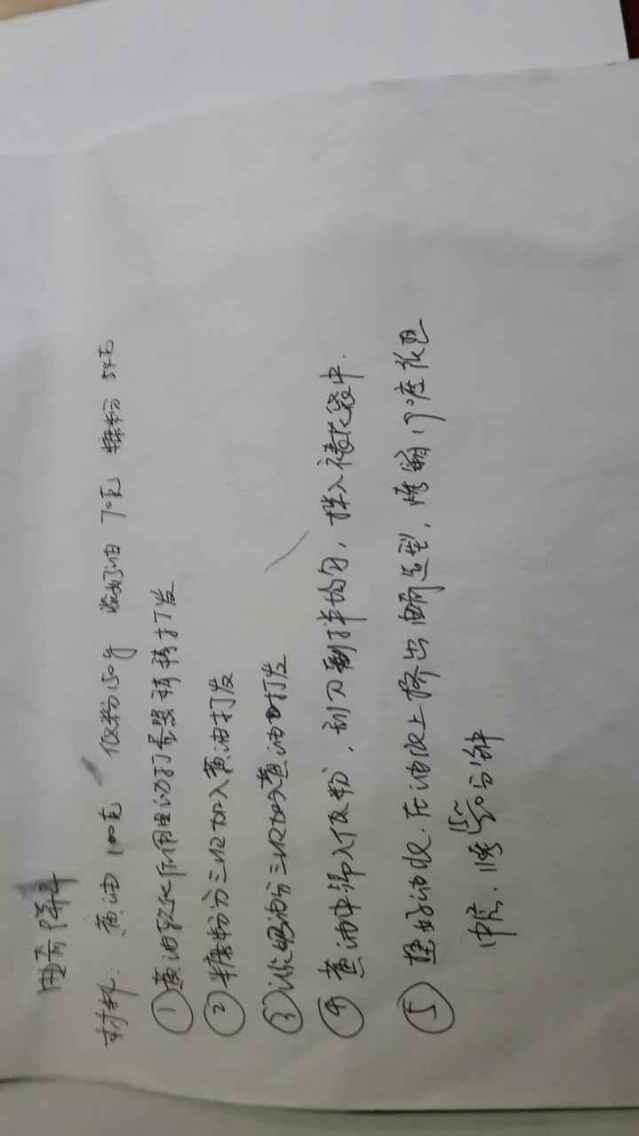 曲奇饼干
材料: 黄油100克 低粉150g 淡奶油70克 糖粉54克
① 黄油软化后用电动打蛋器稍稍打发
② 糖粉分三次加入黄油打发
③ 淡奶油分三次加入黄油打发
④ 黄油中筛入低粉,刮刀翻拌均匀,拌入裱花袋中.
⑤ 垫好油纸.在油纸上挤出曲奇造型,烤箱170度
中层.烤 分钟